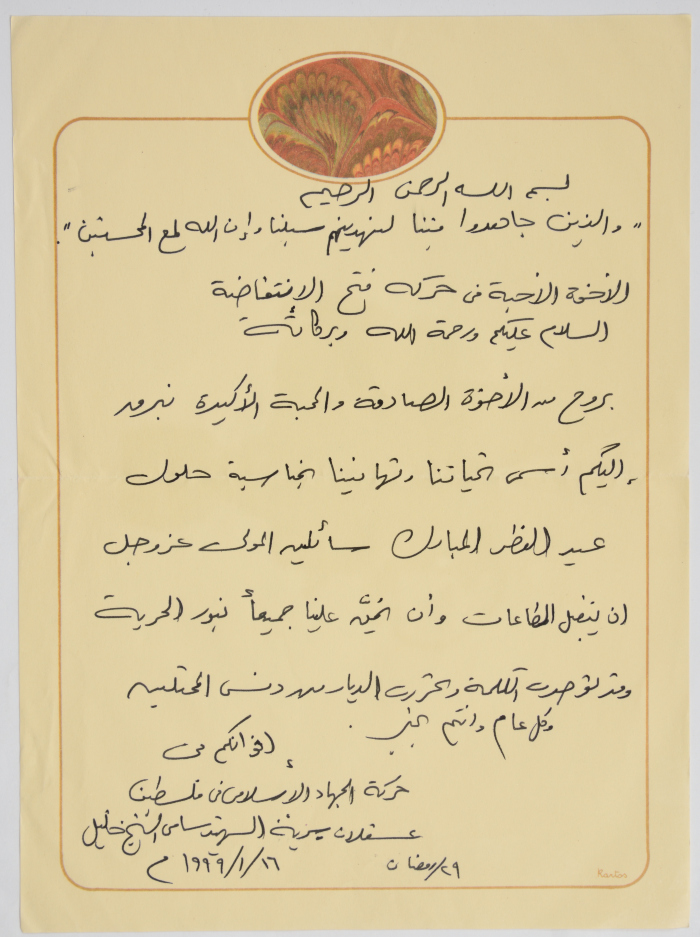 بسم الله الرحمن الرحيم
" والذين جاهدوا فينا لنهدينهم سبلنا وإن الله لمع المحسنين ".
الأخوة الأحبة في حركة فتح الانتفاضة
السلام عليكم ورحمة الله وبركاته
بروح من الأخوة الصادقة والمحبة الأكيدة نبرق
إليكم أسمى تحياتنا وتهانينا بمناسبة حلول
عيد الفطر المبارك سائلين المولى عز وجل
ان يتقبل الطاعات وأن يمن علينا جميعاً بنور الحرية
وقد توحدت الكلمة وتحررت الديار من دنس المحتلين
وكل عام وانتم بخير .
إخوانكم في
حركة الجهاد الاسلامي في فلسطين
عسقلان سرية الشهيد سامي الشيخ خليل
٢٩/رمضان
١٦/١/١٩٩٩ م